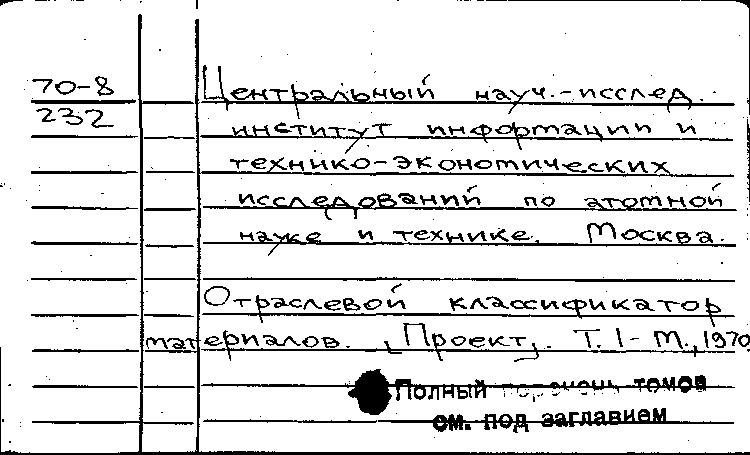 70-8
232
Центральный науч.-исслед.
институт информации и
технико-экономических
исследований по атомной
науке и технике. Москва.
Отраслевой классификатор
материалов. [Проект]. Т. 1- М., 1970
Полный перечень томов
см. под заглавием